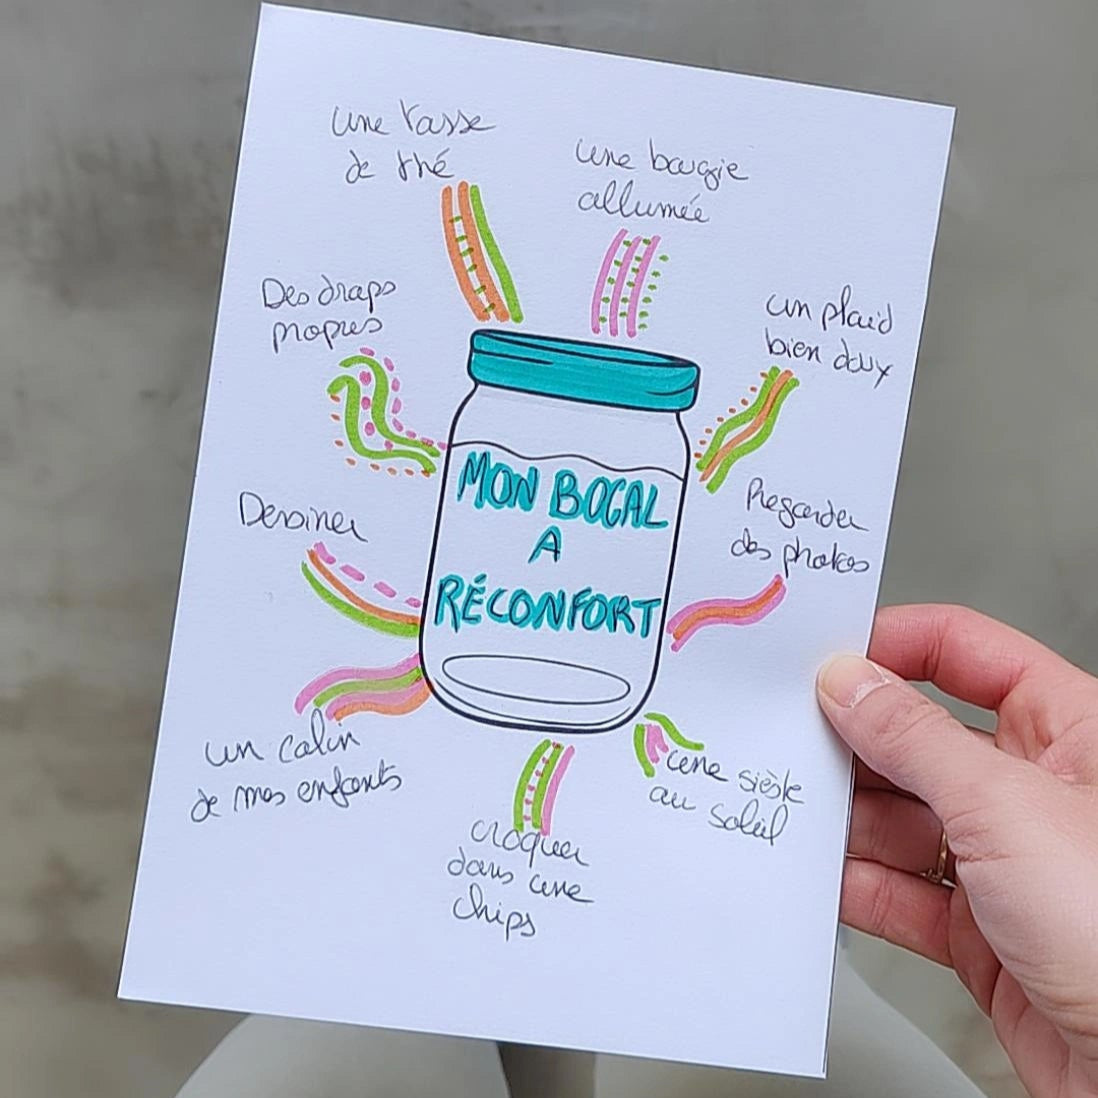 une tasse
de thé
une bougie
allumée
Des draps
propres
un plaid
bien doux
MON BOCAL
A
RÉCONFORT
Regarder
des photos
Dessiner
un calin
de mes enfants
une sièste
au soleil
croquer
dans une
chips